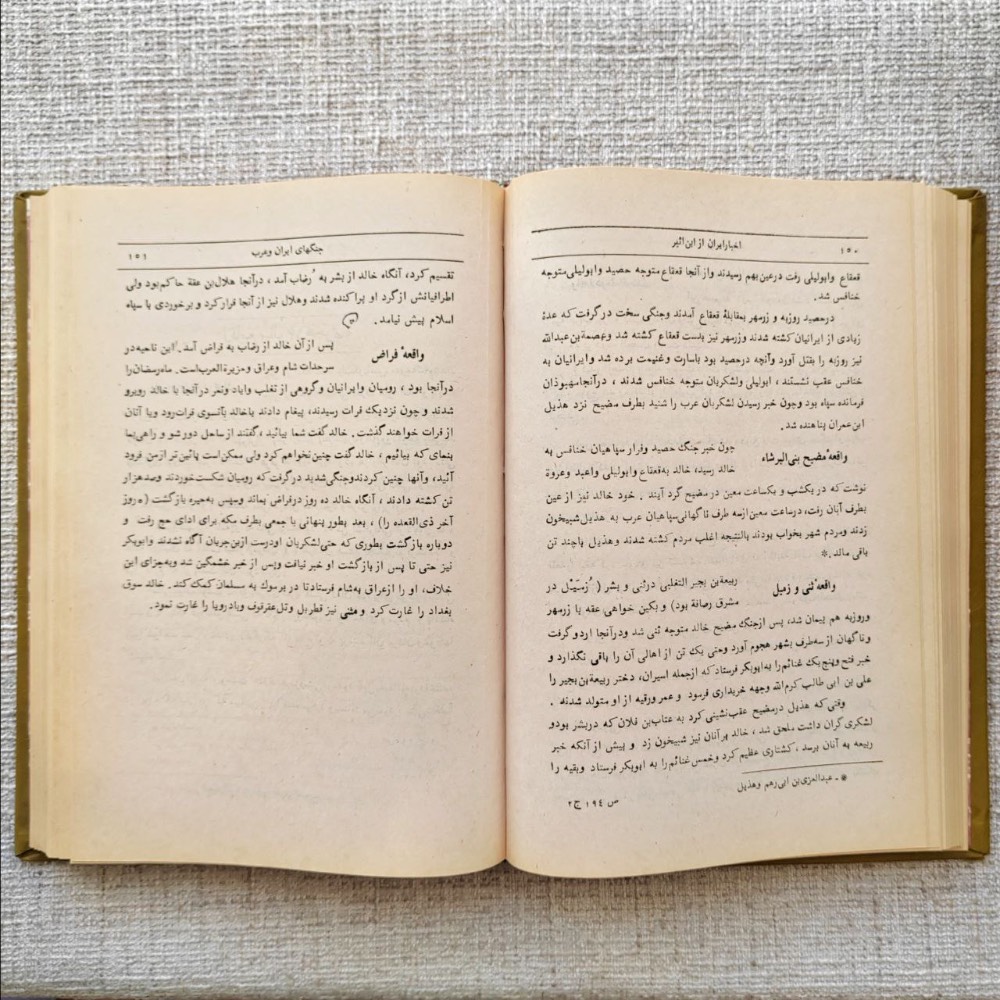 ۱۵۰ اخبار ایران از ابن اثیر
قعقاع و ابولیلی رفت در عین بهم رسیدند و از آنجا قعقاع متوجه حصید و ابولیلی متوجه
خنافس شد.
در حصید روزبه و زرمهر بمقابلهٔ قعقاع آمدند و جنگی سخت در گرفت که عدهٔ
زیادی از ایرانیان کشته شدند و زرمهر نیز بدست قعقاع کشته شد و عصمة بن عبدالله
نیز روزبه را بقتل آورد و آنچه در حصید بود باسارت و غنیمت برده شد و ایرانیان به
خنافس عقب نشستند ، ابولیلی و لشکریان متوجه خنافس شدند ، در آنجا مهبوذان
فرمانده سپاه بود و چون خبر رسیدن لشکریان عرب را شنید بطرف مضیح نزد هذیل
ابن عمران پناهنده شد.
واقعهٔ مضیح بنی البرشاء
چون خبر جنگ حصید و فرار سپاهیان خنافس به
خالد رسید، خالد به قعقاع و ابولیلی و اعبد و عروة
نوشت که در یکشب و یکساعت معین در مضیح گرد آیند . خود خالد نیز از عین
بطرف آنان رفت، در ساعت معین از سه طرف ناگهانی سپاهیان عرب به هذیل شبیخون
زدند و مردم شهر بخواب بودند بالنتیجه اغلب مردم کشته شدند و هذیل با چند تن
باقی ماند.*
واقعهٔ ثنی و زمیل
ربیعة بن بجیر التغلبی در ثنی و بشر ( زُمَیل در
مشرق رصافة بود) و بکین خواهی عقه با زرمهر
و روزبه هم پیمان شد، پس از جنگ مضیح خالد متوجه ثنی شد و در آنجا اردو گرفت
و ناگهان از سه طرف بشهر هجوم آورد و حتی یک تن از اهالی آن را باقی نگذارد و
خبر فتح و پنج یک غنائم را به ابوبکر فرستاد که از جمله اسیران، دختر ربیعة بن بجیر را
علی بن ابی طالب کرم الله وجهه خریداری فرمود و عمر و رقیه از او متولد شدند .
وقتی که هذیل در مضیح عقب نشینی کرد به عتاب بن فلان که در بشر بود و
لشکری گران داشت ملحق شد ، خالد بر آنان نیز شبیخون زد و پیش از آنکه خبر
ربیعه به آنان برسد ، کشتاری عظیم کرد و خمس غنائم را به ابوبکر فرستاد و بقیه را
* - عبدالعزی بن ابی رهم و هذیل
ص ۱۹۴ ج ۲
جنگهای ایران و عرب ۱۵۱
تقسیم کرد، آنگاه خالد از بشر به رُضاب آمد ، در آنجا هلال بن عقة حاکم بود ولی
اطرافیانش از گرد او پراکنده شدند و هلال نیز از آنجا فرار کرد و برخوردی با سپاه
اسلام پیش نیامد.
واقعهٔ فراض
پس از آن خالد از رضاب به فراض آمد. این ناحیه در
سرحدات شام و عراق و جزیرة العرب است. ماه رمضان را
در آنجا بود ، رومیان و ایرانیان و گروهی از تغلب و ایاد و نمر در آنجا با خالد روبرو
شدند و چون نزدیک فرات رسیدند، پیغام دادند یا خالد بآنسوی فرات رود و یا آنان
از فرات خواهند گذشت . خالد گفت شما بیائید ، گفتند از ساحل دور شو و راهی بما
بنمای که بیائیم ، خالد گفت چنین نخواهم کرد ولی ممکن است پائین تر از من فرود
آئید، و آنها چنین کردند و جنگی شدید در گرفت که رومیان شکست خوردند و صد هزار
تن کشته دادند ، آنگاه خالد ده روز در فراض بماند و سپس به حیره بازگشت (۵ روز
آخر ذی القعده را) ، بعد بطور پنهانی با جمعی بطرف مکه برای ادای حج رفت و
دوباره بازگشت بطوری که حتی لشکریان او درست ازین جریان آگاه نشدند و ابوبکر
نیز حتی تا پس از بازگشت او خبر نیافت و پس از خبر خشمگین شد و به جزای این
خلاف، او را از عراق به شام فرستاد تا در یرموک به مسلمانان کمک کند. خالد سوق
بغداد را غارت کرد و مثنی نیز قطربل و تل عقرقوف و بادرویا را غارت نمود.